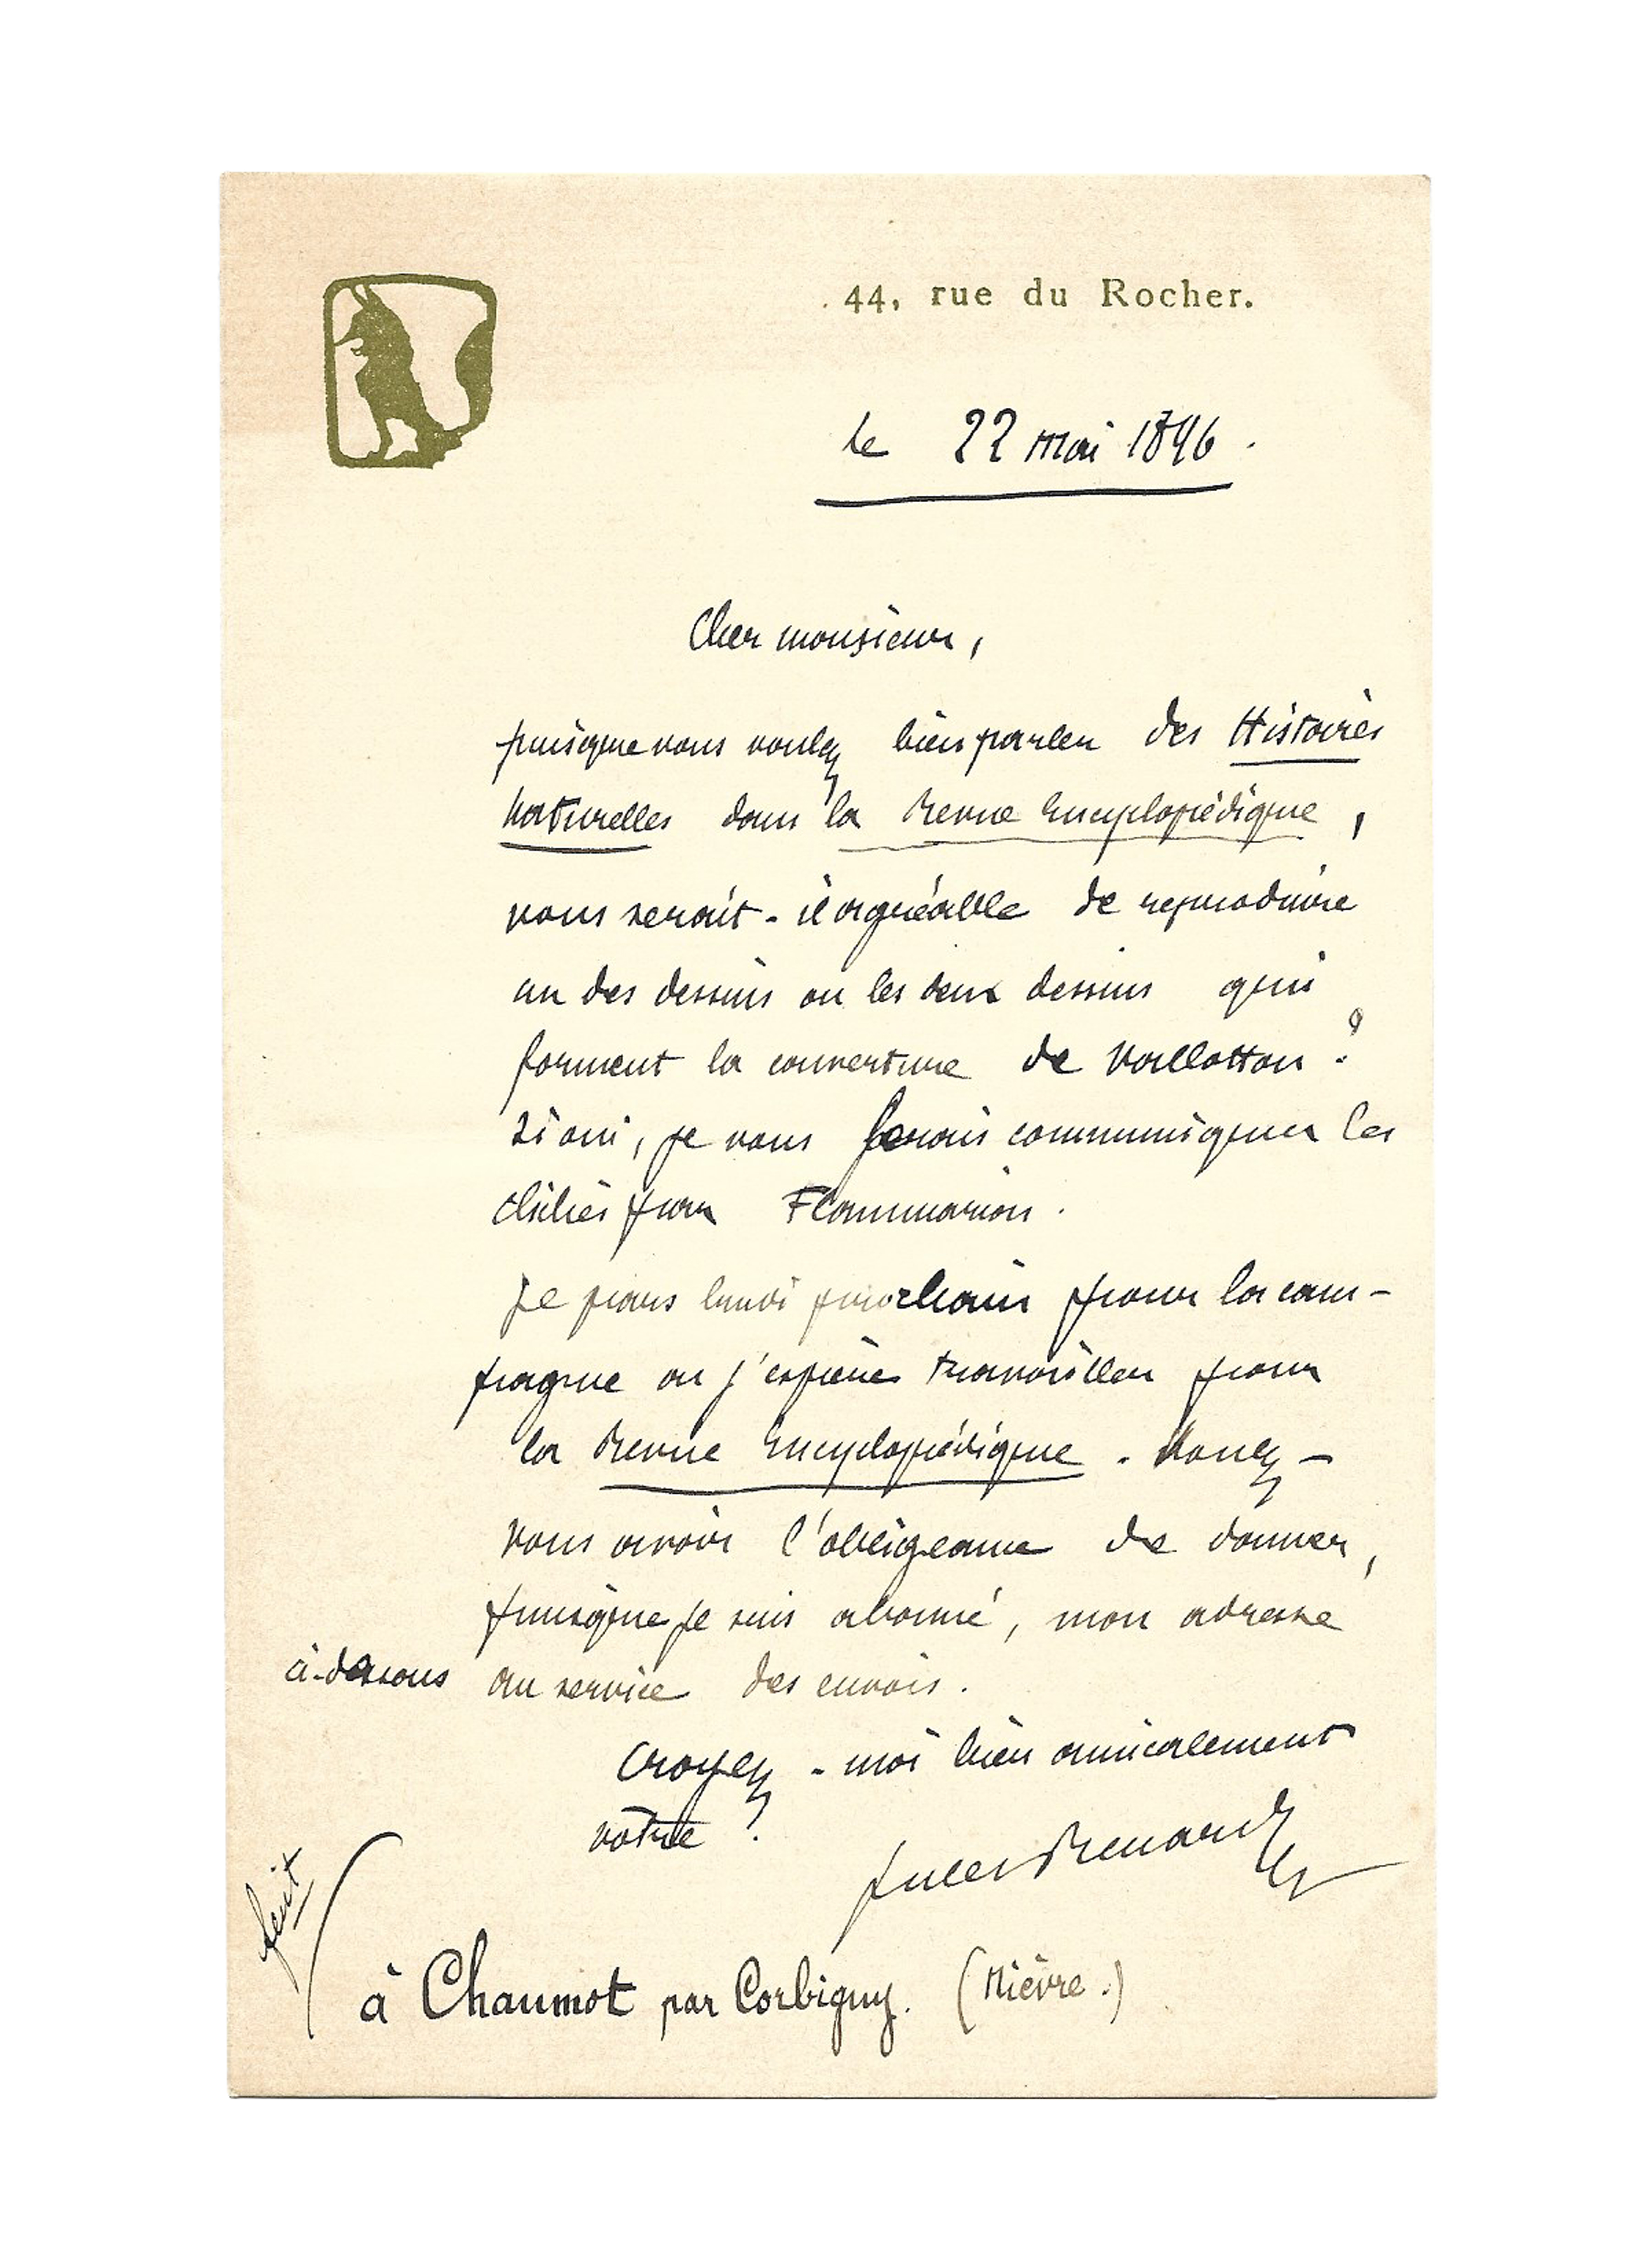 44, rue du Rocher.
le 22 mai 1896.
Cher monsieur,
puisque vous voulez bien parler des Histoires
Naturelles dans la Revue Encyclopédique,
vous serait-il agréable de reproduire
un des dessins ou les deux dessins qui
forment la couverture de Vallotton ?
Si oui, je vous ferais communiquer les
clichés par Flammarion.
Je pars lundi prochain pour la cam-
pagne où j'espère travailler pour
la Revue Encyclopédique. Voulez-
vous avoir l'obligeance de donner,
puisque je suis abonné, mon adresse
ci-dessous au service des envois.
Croyez-moi bien amicalement
votre
Jules Renard
fait
à Chaumot par Corbigny. (Nièvre.)